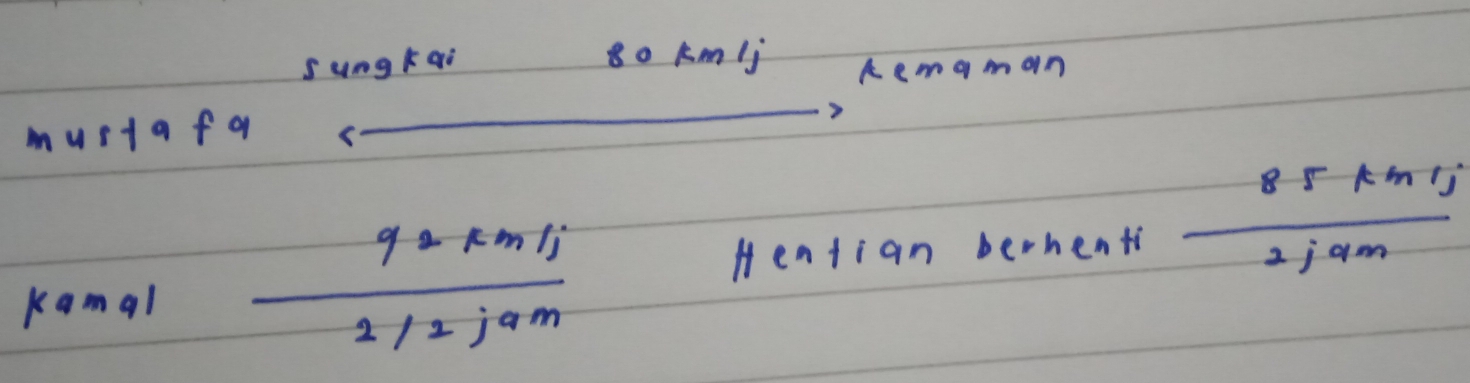 sungkai 80 km/j kemaman
mustafa
92 km/j Hentian berhenti 85 km/j
kamal 2/2 jam 2 jam